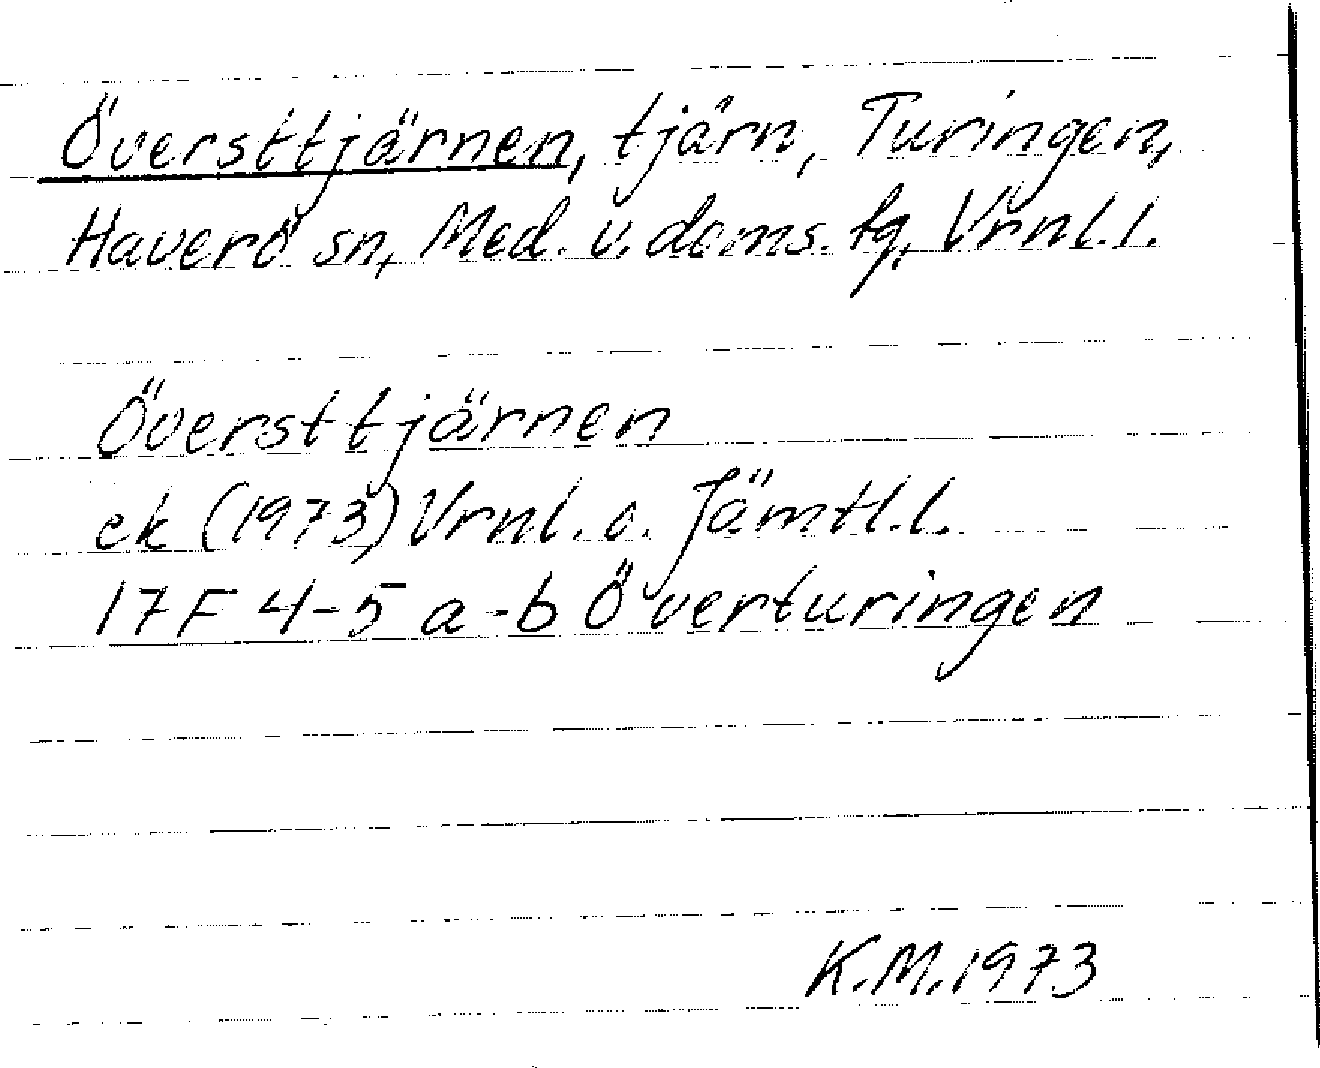 Översttjärnen, tjärn, Turingen,
Haverö sn, Med. v. doms. tg, Vrnl. l.
Översttjärnen
ek (1973) Vrnl. o. Jämtl. l.
17F 4-5 a-b Överturingen
K.M. 1973